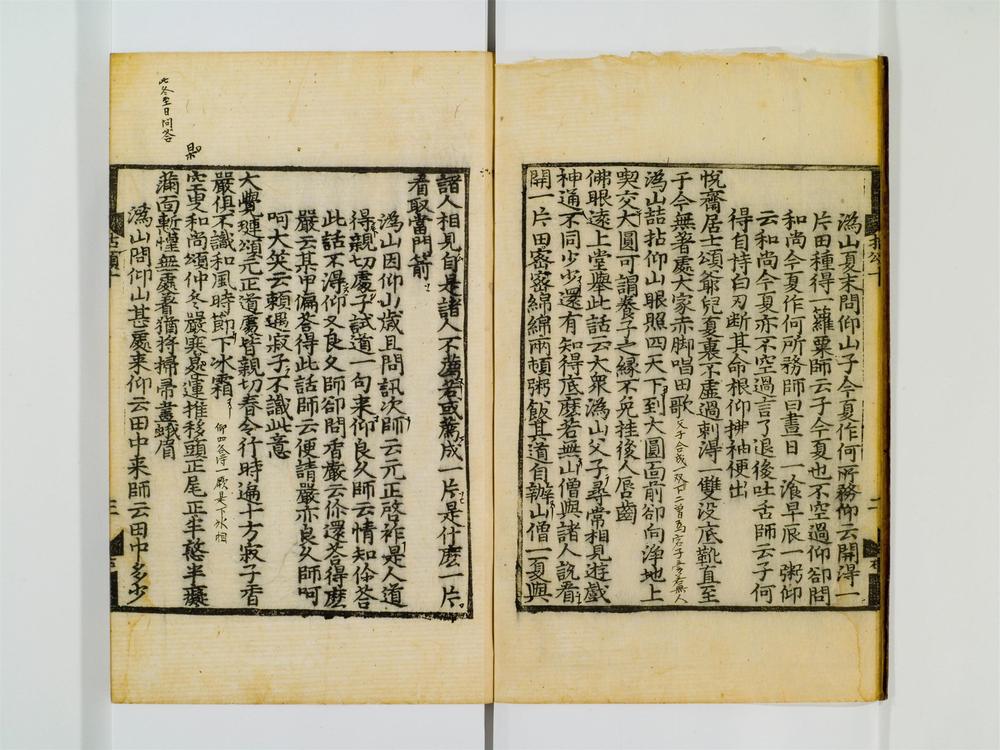 溈山夏末問仰山子今夏作何所務仰云開得一
片田種得一籮粟師云子今夏也不空過仰却問
和尚今夏作何所務師曰晝日一飡早辰一粥仰
云和尚今夏亦不空過言了退後吐舌師云子何
得自持白刃斷其命根仰拂袖便出
悅齋居士頌爺兒夏裏不虛過剌得一雙没底靴直至
于今無著處大家赤脚唱田歌
溈山喆拈仰山眼照四天下到大圓面前却向淨地上
喫交大圓可謂養子之緣不免挂後人唇齒
佛眼遠上堂擧此話云大衆溈山父子尋常相見遊戱
神通不同少少還有知得底麽若無山僧與諸人說看
開一片田密密綿綿兩頓粥飯其道自辦山僧一夏與
諸人相見自是諸人不薦若或薦成一片是什麽一片
看取當門箭
溈山因仰山歲旦問訊次師云元正啓祚是人道
得親切處子試道一句来仰良久師云情知伱答
此話不得仰又良久師却問香嚴云伱還答得麽
嚴云某甲偏答得此話師云便請嚴亦良久師呵
呵大笑云賴遇寂子不識此意
大覺璉頌元正道處皆親切春令行時遍十方寂子香
嚴俱不識和風時節下冰霜
空叟和尚頌仲冬嚴寒晷運推移頭正尾正半憨半癡
滿面慚惶無處著猶將掃帚畫蛾眉
溈山問仰山甚處来仰云田中来師云田中多少
此冬至日問答